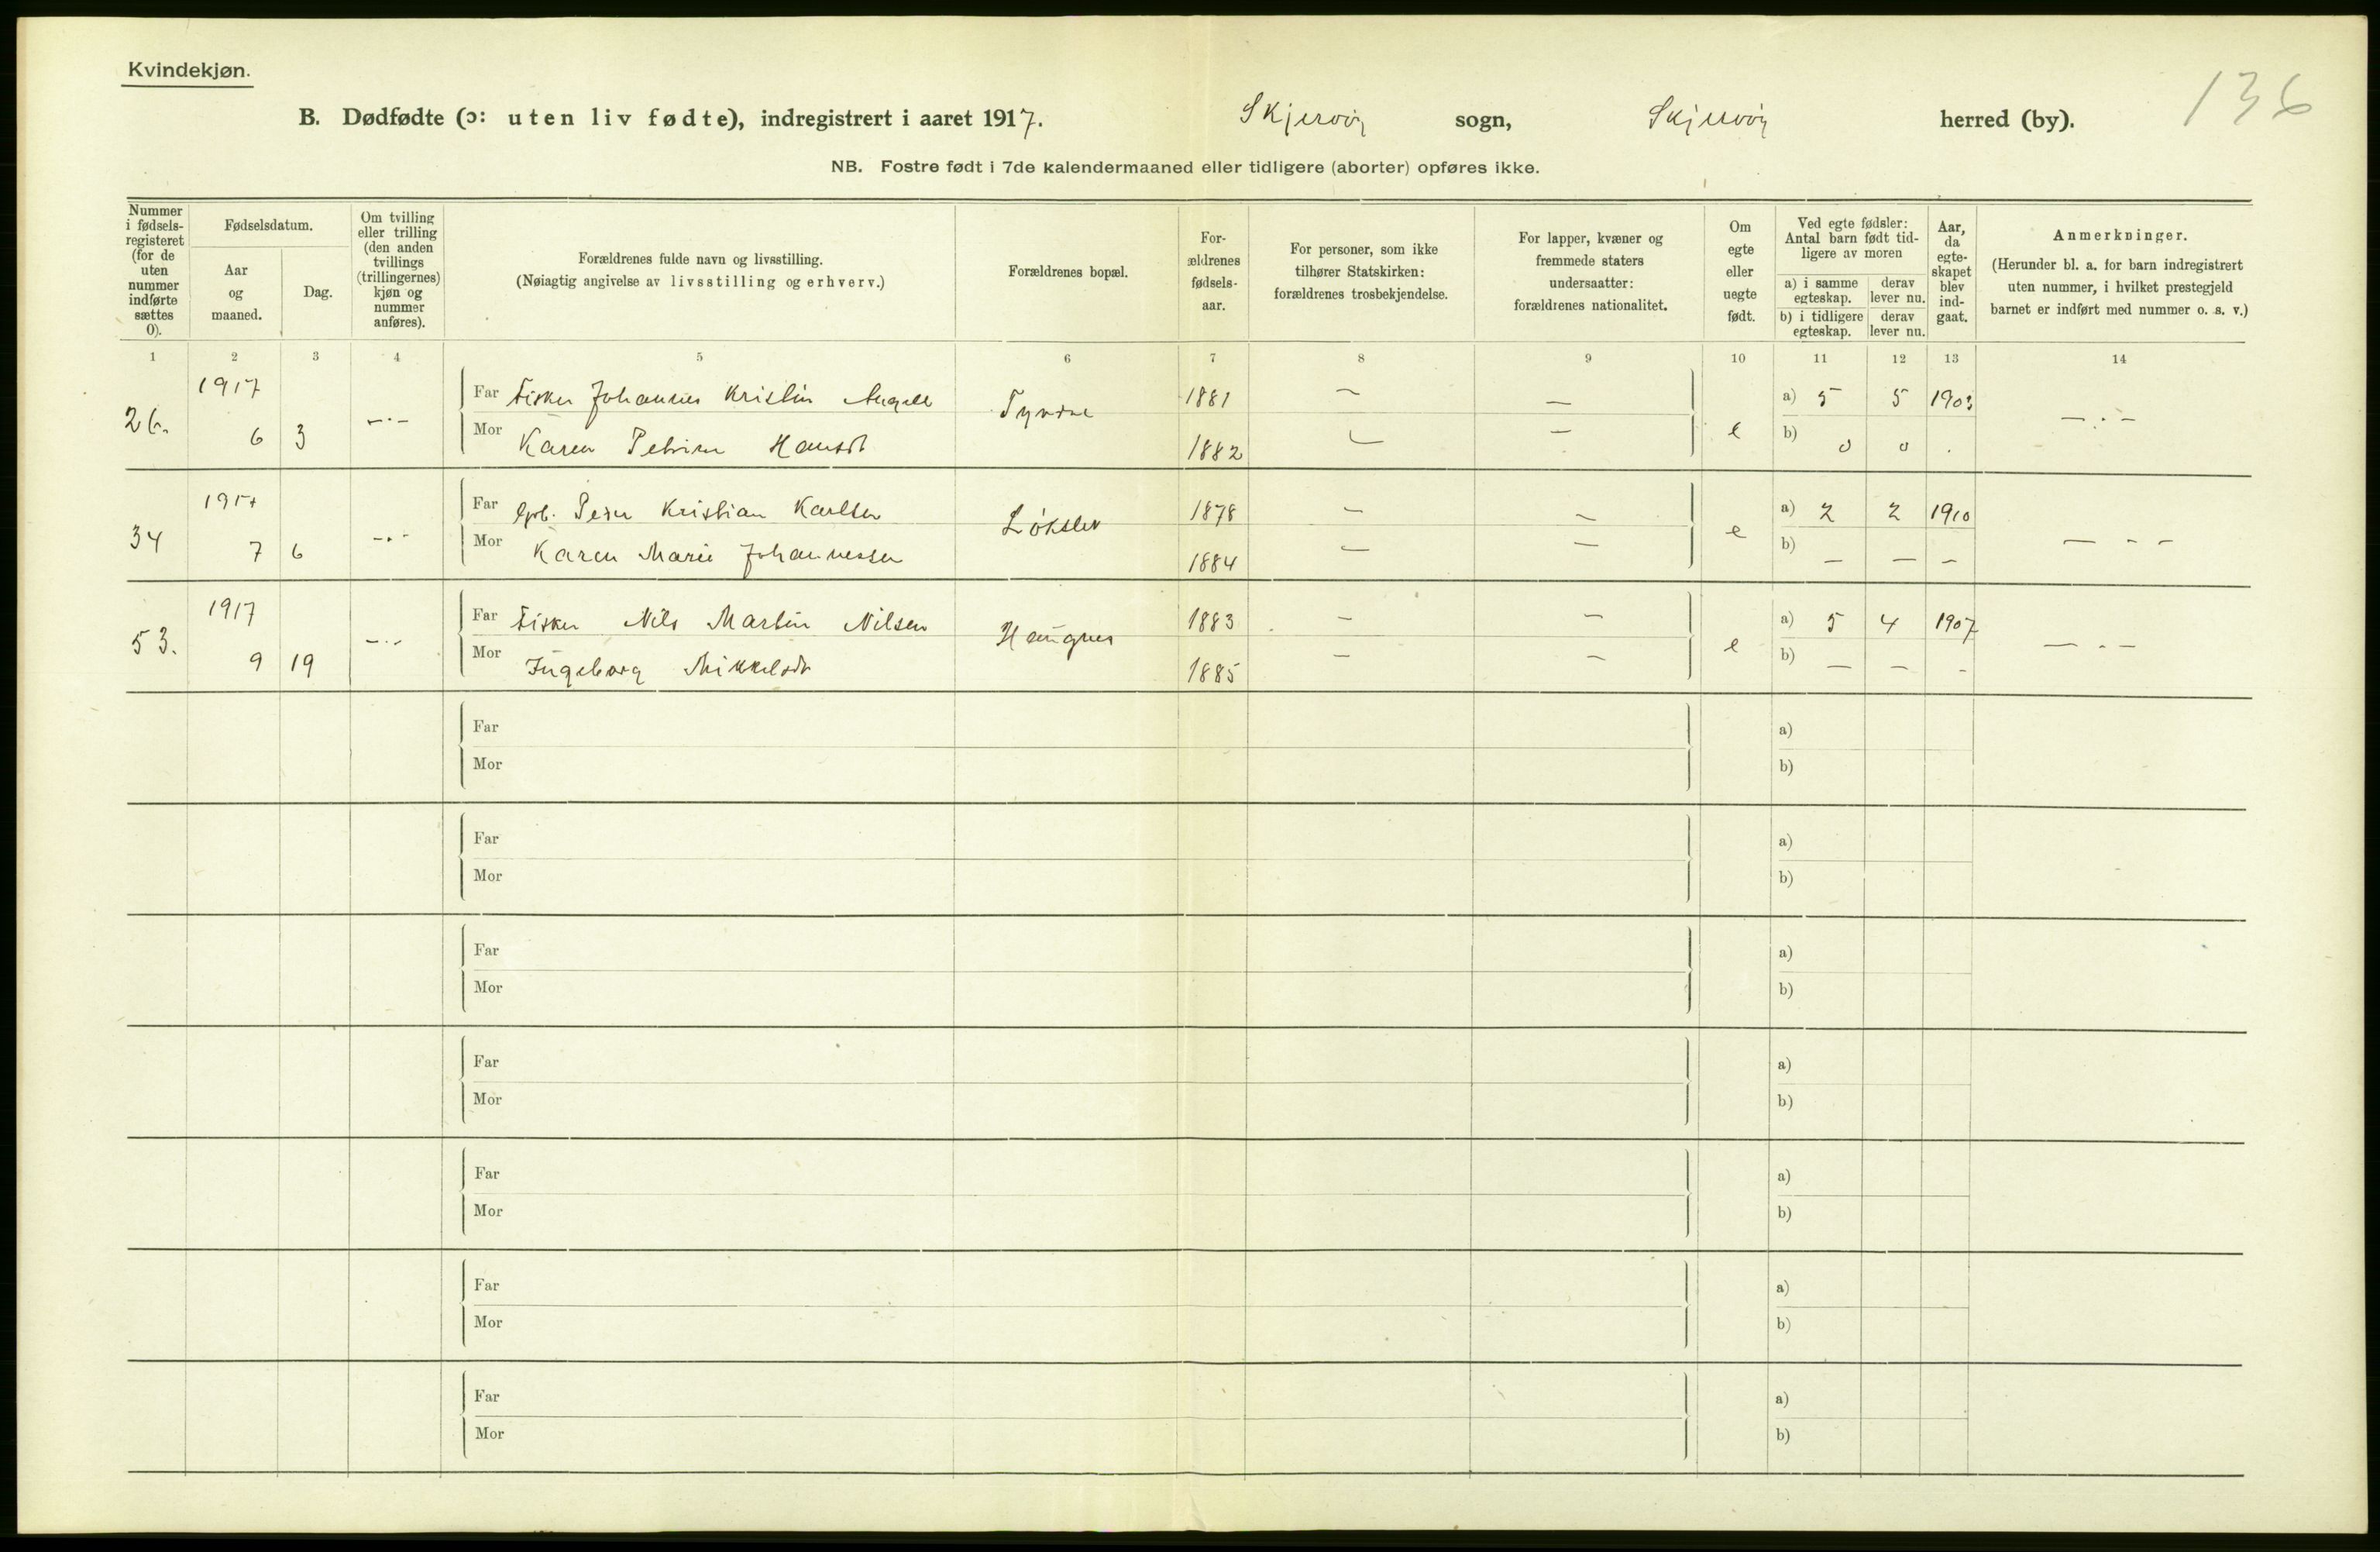 Kvindekjøn.
136
B. Dødfødte (ɔ: uten liv fødte), indregistrert i aaret 1917. Skjervöy sogn, Skjervöy herred (by).
NB. Fostre født i 7de kalendermaaned eller tidligere (aborter) opføres ikke.
Nummer i fødsels-registeret (for de uten nummer indførte sættes 0).
Fødselsdatum.
Aar og maaned.
Dag.
Om tvilling eller trilling (den anden tvillings (trillingernes) kjøn og nummer anføres).
Forældrenes fulde navn og livsstilling.
(Nøiagtig angivelse av livsstilling og erhverv.)
Forældrenes bopæl.
For-ældrenes fødsels-aar.
For personer, som ikke tilhører Statskirken: forældrenes trosbekjendelse.
For lapper, kvæner og fremmede staters undersaatter: forældrenes nationalitet.
Om egte eller uegte født.
Ved egte fødsler: Antal barn født tid-ligere av moren
a) i samme egteskap. derav lever nu.
b) i tidligere egteskap. derav lever nu.
Aar, da egte-skapet blev ind-gaat.
Anmerkninger.
(Herunder bl. a. for barn indregistrert uten nummer, i hvilket prestegjeld barnet er indført med nummer o. s. v.)
1 2 3 4 5 6 7 8 9 10 11 12 13 14
26. 1917 6 3 — · — Far Fisker Johannes Kristin 1881 — — a) 5 5 1903 — · —
Mor Karen Petrine Hansdt 1882 — — e b) 0 0 .
34 1917 7 6 — · - Far Peder Kristian Karlsen 1878 — — a) 2 2 1910 — - -
Mor Karen Marie Johannessen 1884 — — e b) — — —
53. 1917 9 19 — · - Far Fisker Nils Martin Nilsen Haugnes 1883 — — a) 5 4 1907 — - —
Mor Ingeborg Mikkelsdt 1885 — — e b) — — -
Far a)
Mor b)
Far a)
Mor b)
Far a)
Mor b)
Far a)
Mor b)
Far a)
Mor b)
Far a)
Mor b)
Far a)
Mor b)